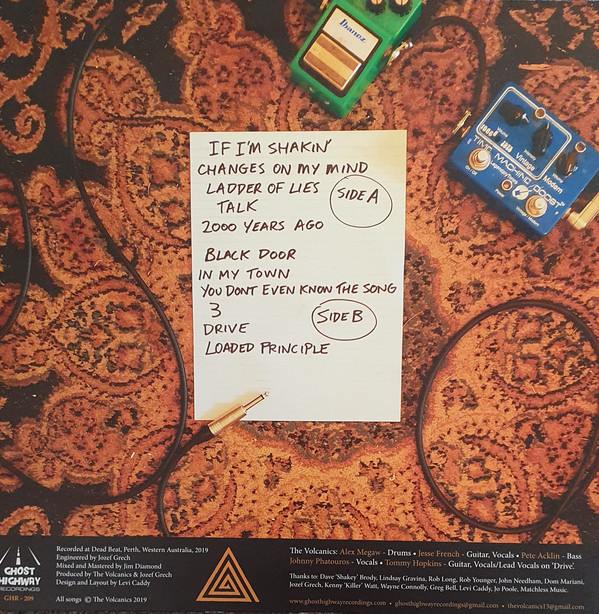 Ibanez
TIME MACHINE BOOST
Vintage
Modern
IF I'M SHAKIN'
CHANGES ON MY MIND
LADDER OF LIES
SIDE A
TALK
2000 YEARS AGO
BLACK DOOR
IN MY TOWN
YOU DONT EVEN KNOW THE SONG
3
SIDE B
DRIVE
LOADED PRINCIPLE
GHOST
HIGHWAY
RECORDINGS
GHR - 209
Recorded at Dead Beat, Perth, Western Australia, 2019
Engineered by Jozef Grech
Mixed and Mastered by Jim Diamond
Produced by The Volcanics & Jozef Grech
Design and Layout by Levi Caddy
All songs © The Volcanics 2019
The Volcanics: Alex Megaw - Drums • Jesse French - Guitar, Vocals • Pete Acklin - Bass
Johnny Phatouros - Vocals • Tommy Hopkins - Guitar, Vocals/Lead Vocals on 'Drive'.
Thanks to: Dave 'Shakey' Brody, Lindsay Gravina, Rob Long, Rob Younger, John Needham, Dom Mariani,
Jozef Grech, Kenny 'Killer' Watt, Wayne Connolly, Greg Bell, Levi Caddy, Jo Poole, Matchless Music.
www.ghosthighwayrecordings.com • ghosthighwayrecordings@gmail.com • thevolcanics13@gmail.com